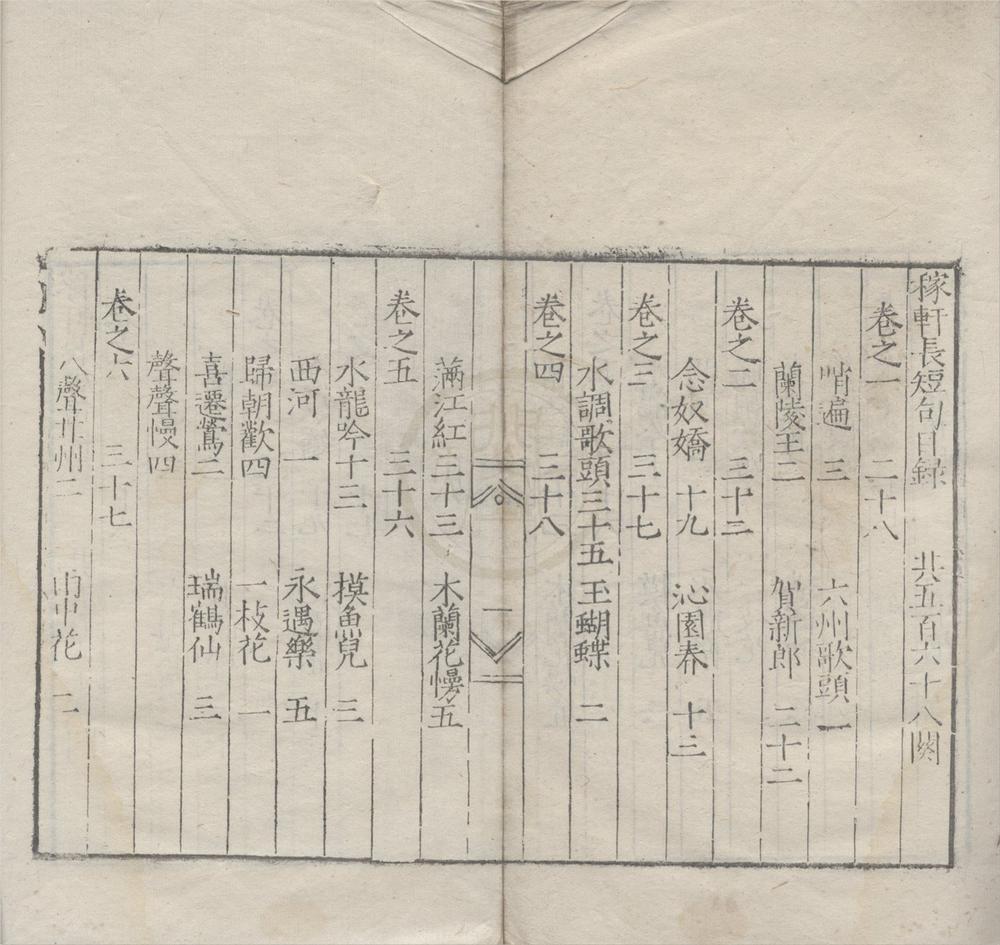 稼軒長短句目録　共五百六十八闋
卷之一　二十八
哨遍　三　六州歌頭　一
蘭陵王二　賀新郎　二十二
卷之二　三十二
念奴嬌　十九　沁園春　十三
卷之三　三十七
水調歌頭三十五　玉蝴蝶　二
卷之四　三十八
一
滿江紅三十三　木蘭花慢五
卷之五　三十六
水龍吟十三　摸魚兒　三
西河　一　永遇樂　五
歸朝歡四　一枝花　一
喜遷鶯二　瑞鶴仙　三
聲聲慢四
卷之六　三十七
八聲甘州二　雨中花　二